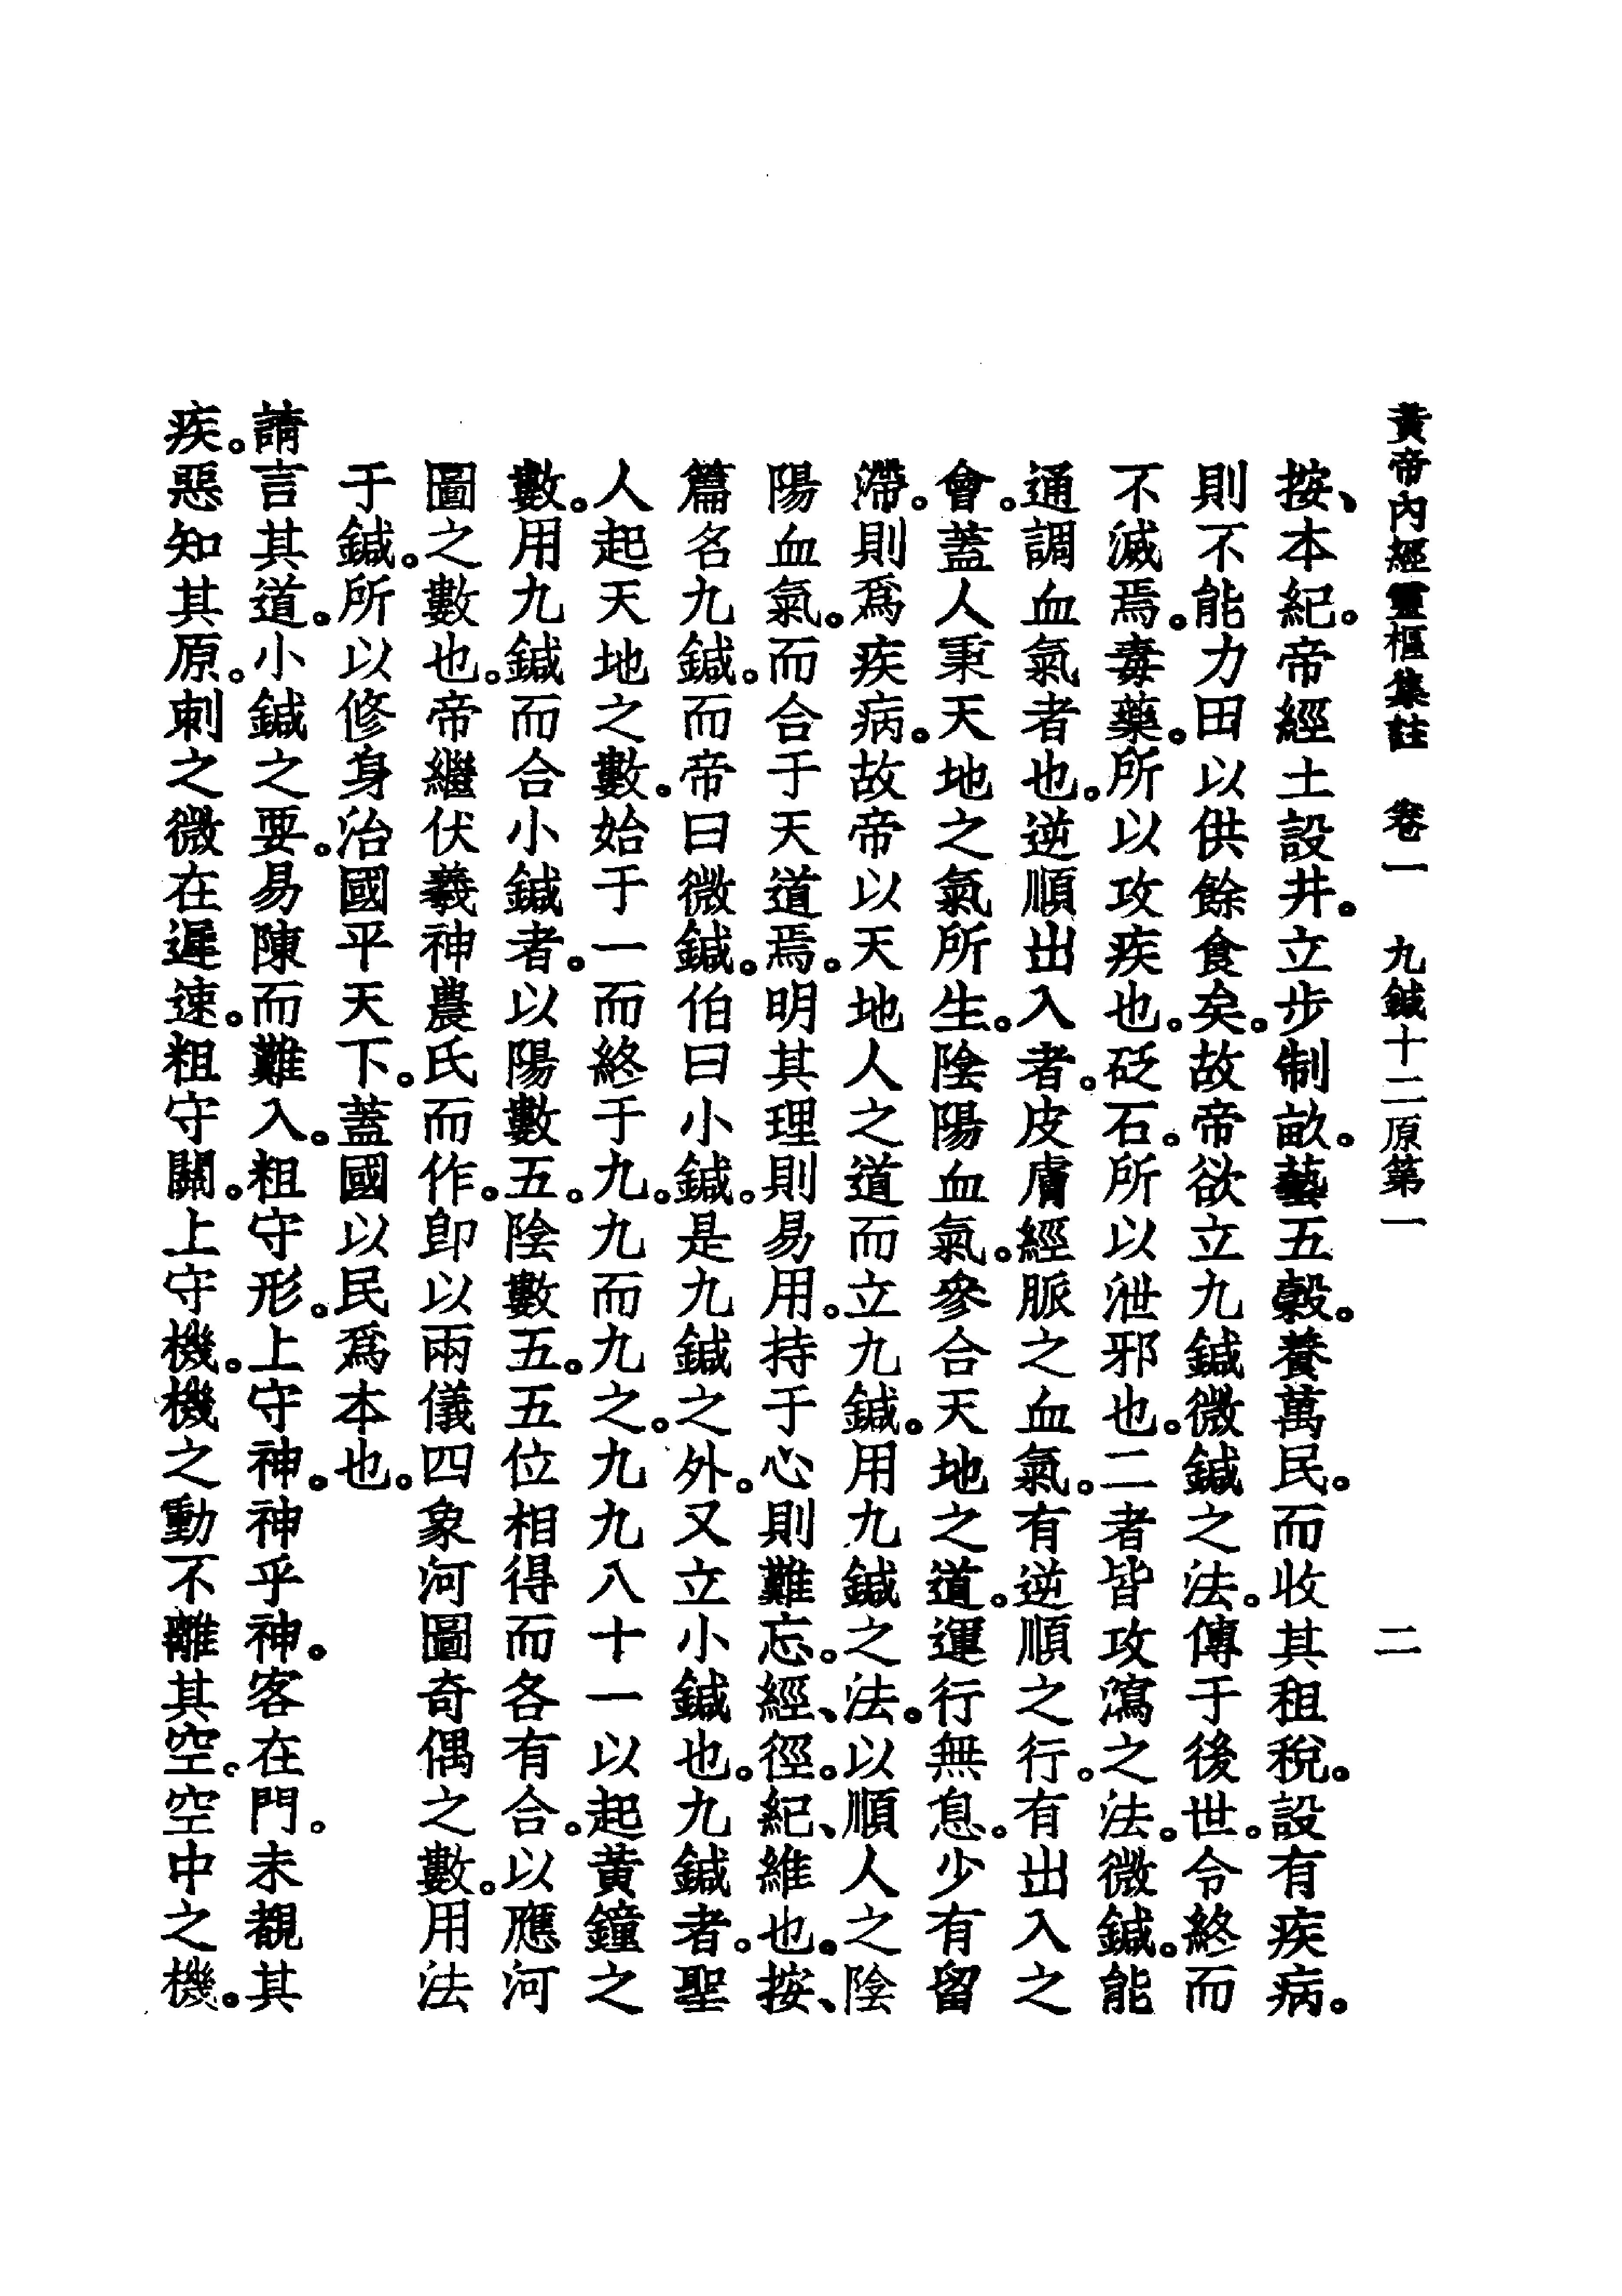 黃帝內經靈樞集註　卷一　九鍼十二原第一　二
按、本紀。帝經土設井。立步制畝。藝五穀。養萬民。而收其租稅。設有疾病。
則不能力田以供餘食矣。故帝欲立九鍼微鍼之法。傳于後世。令終而
不滅焉。毒藥。所以攻疾也。砭石。所以泄邪也。二者皆攻瀉之法。微鍼。能
通調血氣者也。逆順出入者。皮膚經脈之血氣。有逆順之行。有出入之
會。蓋人秉天地之氣所生。陰陽血氣。參合天地之道。運行無息。少有留
滯。則爲疾病。故帝以天地人之道而立九鍼。用九鍼之法。以順人之陰
陽血氣。而合于天道焉。明其理則易用。持于心則難忘。經、徑。紀、維也。按、
篇名九鍼。而帝曰微鍼。伯曰小鍼。是九鍼之外。又立小鍼也。九鍼者。聖
人起天地之數。始于一而終于九。九而九之。九九八十一以起黃鐘之
數。用九鍼而合小鍼者。以陽數五。陰數五。五位相得而各有合。以應河
圖之數也。帝繼伏羲神農氏而作。卽以兩儀四象河圖奇偶之數。用法
于鍼。所以修身治國平天下。蓋國以民爲本也。
請言其道。小鍼之要。易陳而難入。粗守形。上守神。神乎神。客在門。未覩其
疾。惡知其原。刺之微在遲速。粗守關。上守機。機之動不離其空。空中之機。